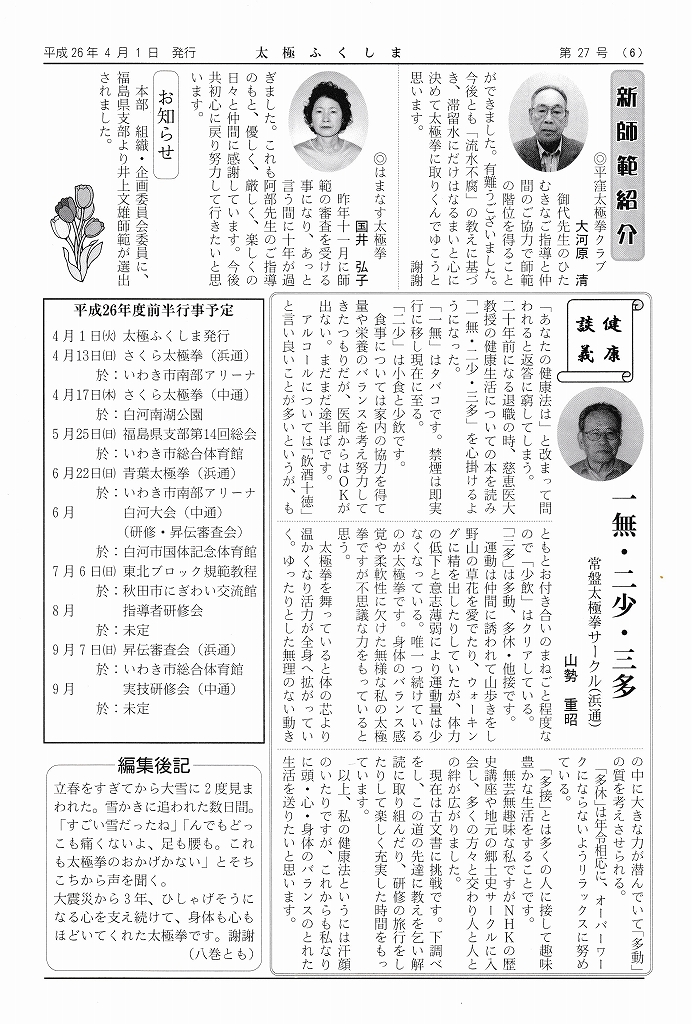 平成26年4月1日　発行
太極ふくしま
第27号（6）
新師範紹介
◎平窪太極拳クラブ
大河原　清
御代先生のひた
むきなご指導と仲
間のご協力で師範
の階位を得ること
ができました。有難うございました。
今後とも「流水不腐」の教えに基づ
き、滞留水にだけはなるまいと心に
決めて太極拳に取りくんでゆこうと
思います。　　　　　　　　謝謝
◎はまなす太極拳
国井　弘子
昨年十一月に師
範の審査を受ける
事になり、あっと
言う間に十年が過
ぎました。これも阿部先生のご指導
のもと、優しく、厳しく、楽しくの
日々と仲間に感謝しています。今後
共初心に戻り努力して行きたいと思
います。
お知らせ
本部　組織・企画委員会委員に、
福島県支部より井上文雄師範が選出
されました。
健康
談義
一無・二少・三多
常盤太極拳サークル(浜通)
山勢　重昭
「あなたの健康法は」と改まって問
われると返答に窮してしまう。
二十年前になる退職の時、慈恵医大
教授の健康生活についての本を読み
「一無・二少・三多」を心掛けるよ
うになった。
「一無」はタバコです。禁煙は即実
行に移し現在に至る。
「二少」は小食と少飲です。
食事については家内の協力を得て
量や栄養のバランスを考え努力して
きたつもりだが、医師からはOKが
出ない。まだまだ途半ばです。
アルコールについては「飲酒十徳」
と言い良いことが多いというが、も
ともとお付き合いのまねごと程度な
ので「少飲」はクリアしている。
「三多」は多動、多休・他接です。
運動は仲間に誘われて山歩きをし
野山の草花を愛でたり、ウォーキン
グに精を出したりしていたが、体力
の低下と意志薄弱により運動量は少
なくなっている。唯一つ続けている
のが太極拳です。身体のバランス感
覚や柔軟性に欠けた無様な私の太極
拳ですが不思議な力をもっていると
思う。
太極拳を舞っていると体の芯より
温かくなり活力が全身へ拡がってい
く。ゆったりとした無理のない動き
の中に大きな力が潜んでいて「多動」
の質を考えさせられる。
「多休」は年令相応に、オーバーワー
クにならないようリラックスに努め
ている。
「多接」とは多くの人に接して趣味
豊かな生活をすることです。
無芸無趣味な私ですがNHKの歴
史講座や地元の郷土史サークルに入
会し、多くの方々と交わり人と人と
の絆が広がりました。
現在は古文書に挑戦です。下調べ
をし、この道の先達に教えを乞い解
読に取り組んだり、研修の旅行をし
たりして楽しく充実した時間をもっ
ています。
以上、私の健康法というには汗顔
のいたりですが、これからも私なり
に頭・心・身体のバランスのとれた
生活を送りたいと思います。
平成26年度前半行事予定
4月1日㈫ 太極ふくしま発行
4月13日㈰ さくら太極拳（浜通）
於：いわき市南部アリーナ
4月17日㈭ さくら太極拳（中通）
於：白河南湖公園
5月25日㈰ 福島県支部第14回総会
於：いわき市総合体育館
6月22日㈰ 青葉太極拳（浜通）
於：いわき市南部アリーナ
6月　　白河大会（中通）
（研修・昇伝審査会）
於：白河市国体記念体育館
7月6日㈰ 東北ブロック規範教程
於：秋田市にぎわい交流館
8月　　指導者研修会
於：未定
9月7日㈰ 昇伝審査会（浜通）
於：いわき市総合体育館
9月　　実技研修会（中通）
於：未定
編集後記
立春をすぎてから大雪に2度見ま
われた。雪かきに追われた数日間。
「すごい雪だったね」「んでもどっ
こも痛くないよ、足も腰も。これ
も太極拳のおかげかない」とそち
こちから声を聞く。
大震災から3年、ひしゃげそうに
なる心を支え続けて、身体も心も
ほどいてくれた太極拳です。謝謝
（八巻とも）